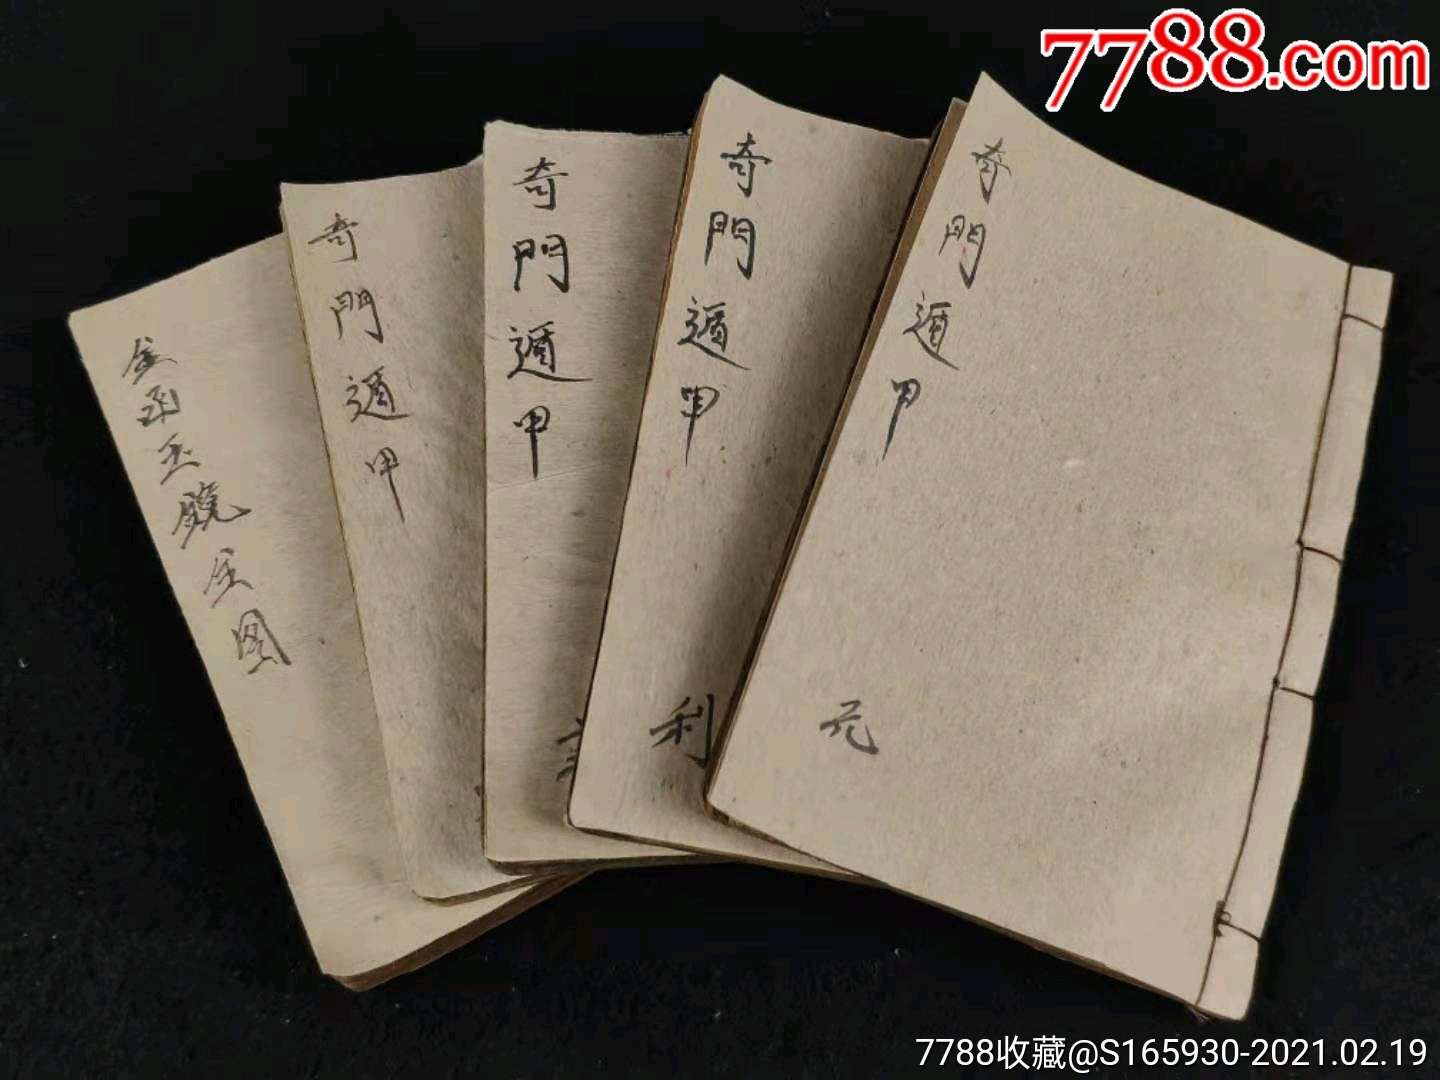 7788.com
奇門遁甲
元
奇門遁甲
利
奇門遁甲
奇門遁甲
金函玉鏡全图
7788收藏@S165930-2021.02.19